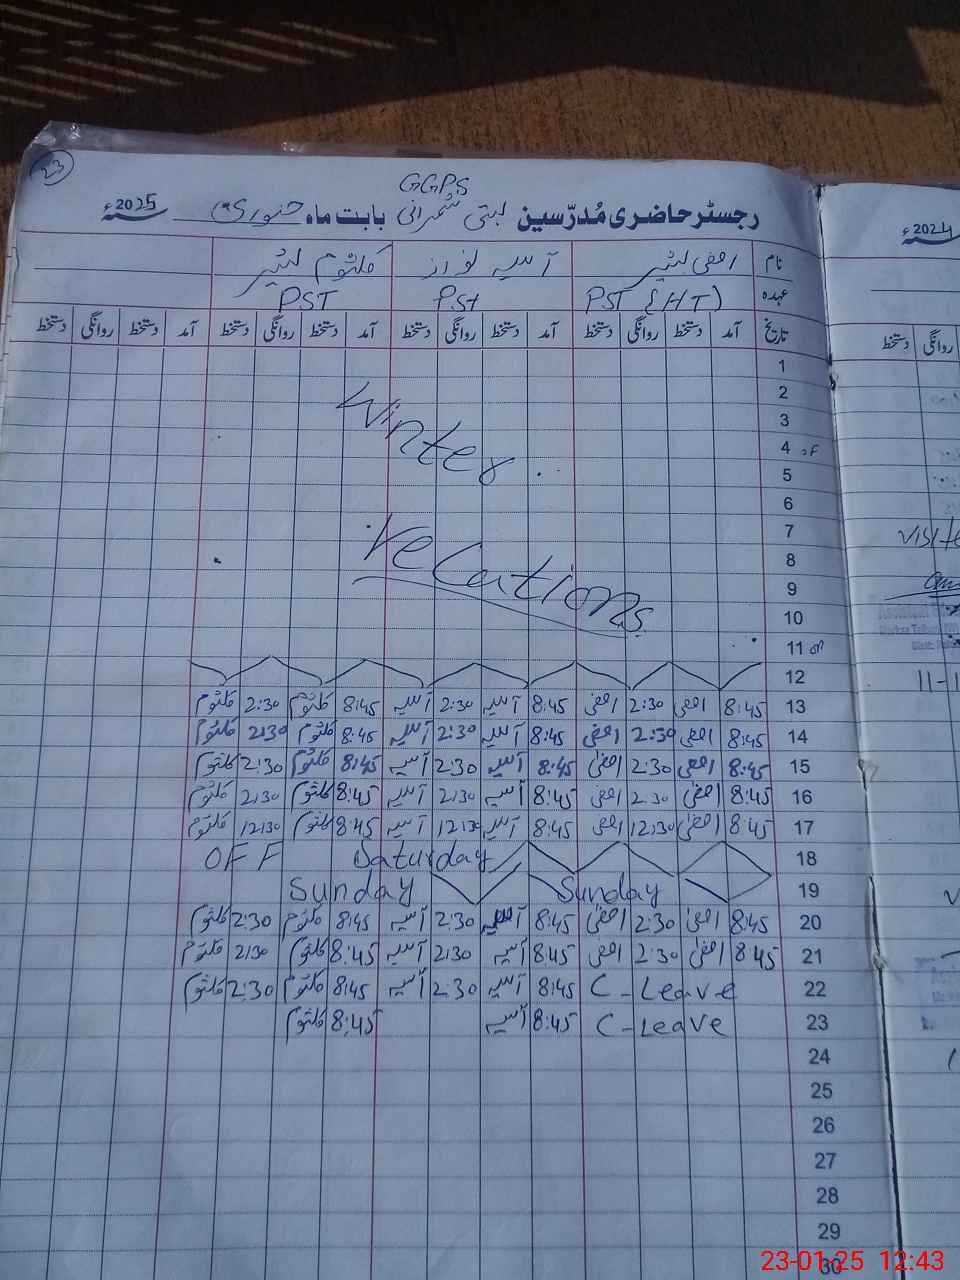 23
GGPS
رجسٹر حاضری مُدرّسین بستی شمرانی بابت ماہ جنوری 2025ء
نام اقصٰی لطیر آسیہ نواز کلثوم لطیر
عہدہ PST (HT) PST PST
تاریخ آمد دستخط روانگی دستخط آمد دستخط روانگی دستخط آمد دستخط روانگی دستخط آمد دستخط روانگی دستخط
1
2
3
4 OF
5
6
7
8
9
10
11 OF
12
Winter
Vecations
13 8:45 اقصٰی 2:30 اقصٰی 8:45 آسیہ 2:30 آسیہ 8:45 کلثوم 2:30 کلثوم
14 8:45 اقصٰی 2:30 اقصٰی 8:45 آسیہ 2:30 آسیہ 8:45 کلثوم 2:30 کلثوم
15 8:45 اقصٰی 2:30 اقصٰی 8:45 آسیہ 2:30 آسیہ 8:45 کلثوم 2:30 کلثوم
16 8:45 اقصٰی 2:30 اقصٰی 8:45 آسیہ 2:30 آسیہ 8:45 کلثوم 2:30 کلثوم
17 8:45 اقصٰی 12:30 اقصٰی 8:45 آسیہ 12:30 آسیہ 8:45 کلثوم 12:30 کلثوم
OFF Saturday 18
Sunday Sunday 19
20 8:45 اقصٰی 2:30 اقصٰی 8:45 آسیہ 2:30 آسیہ 8:45 کلثوم 2:30 کلثوم
21 8:45 اقصٰی 2:30 اقصٰی 8:45 آسیہ 2:30 آسیہ 8:45 کلثوم 2:30 کلثوم
22 C-Leave 8:45 آسیہ 2:30 آسیہ 8:45 کلثوم 2:30 کلثوم
23 C-Leave 8:45 آسیہ 8:45 کلثوم
24
25
26
27
28
29
30
2024ء
روانگی دستخط
11-1
23-01-25 12:43